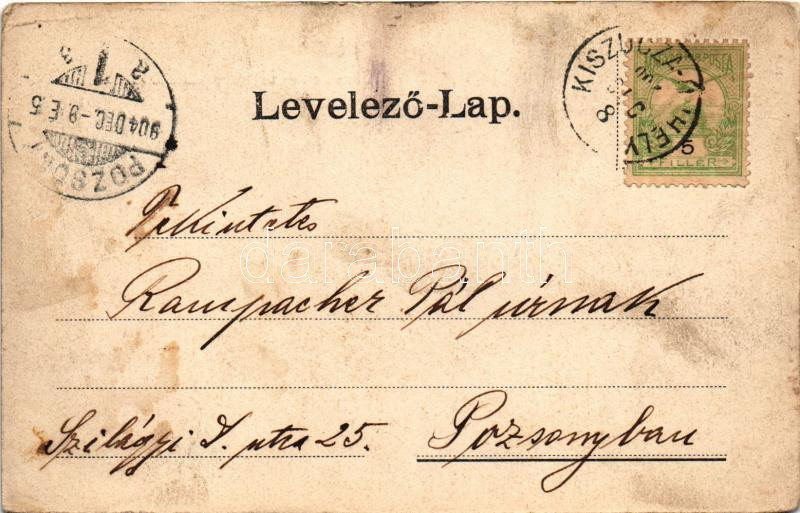 POZSONY
904 DEC.-9.E 5
1
KISZUCZA-ÚJHELY
DEC
8
POSTA
5
FILLER
Levelező-Lap.
darabanth
Tekintetes
Rampacher Pál úrnak
Szilágyi D. utca 25. Pozsonyban